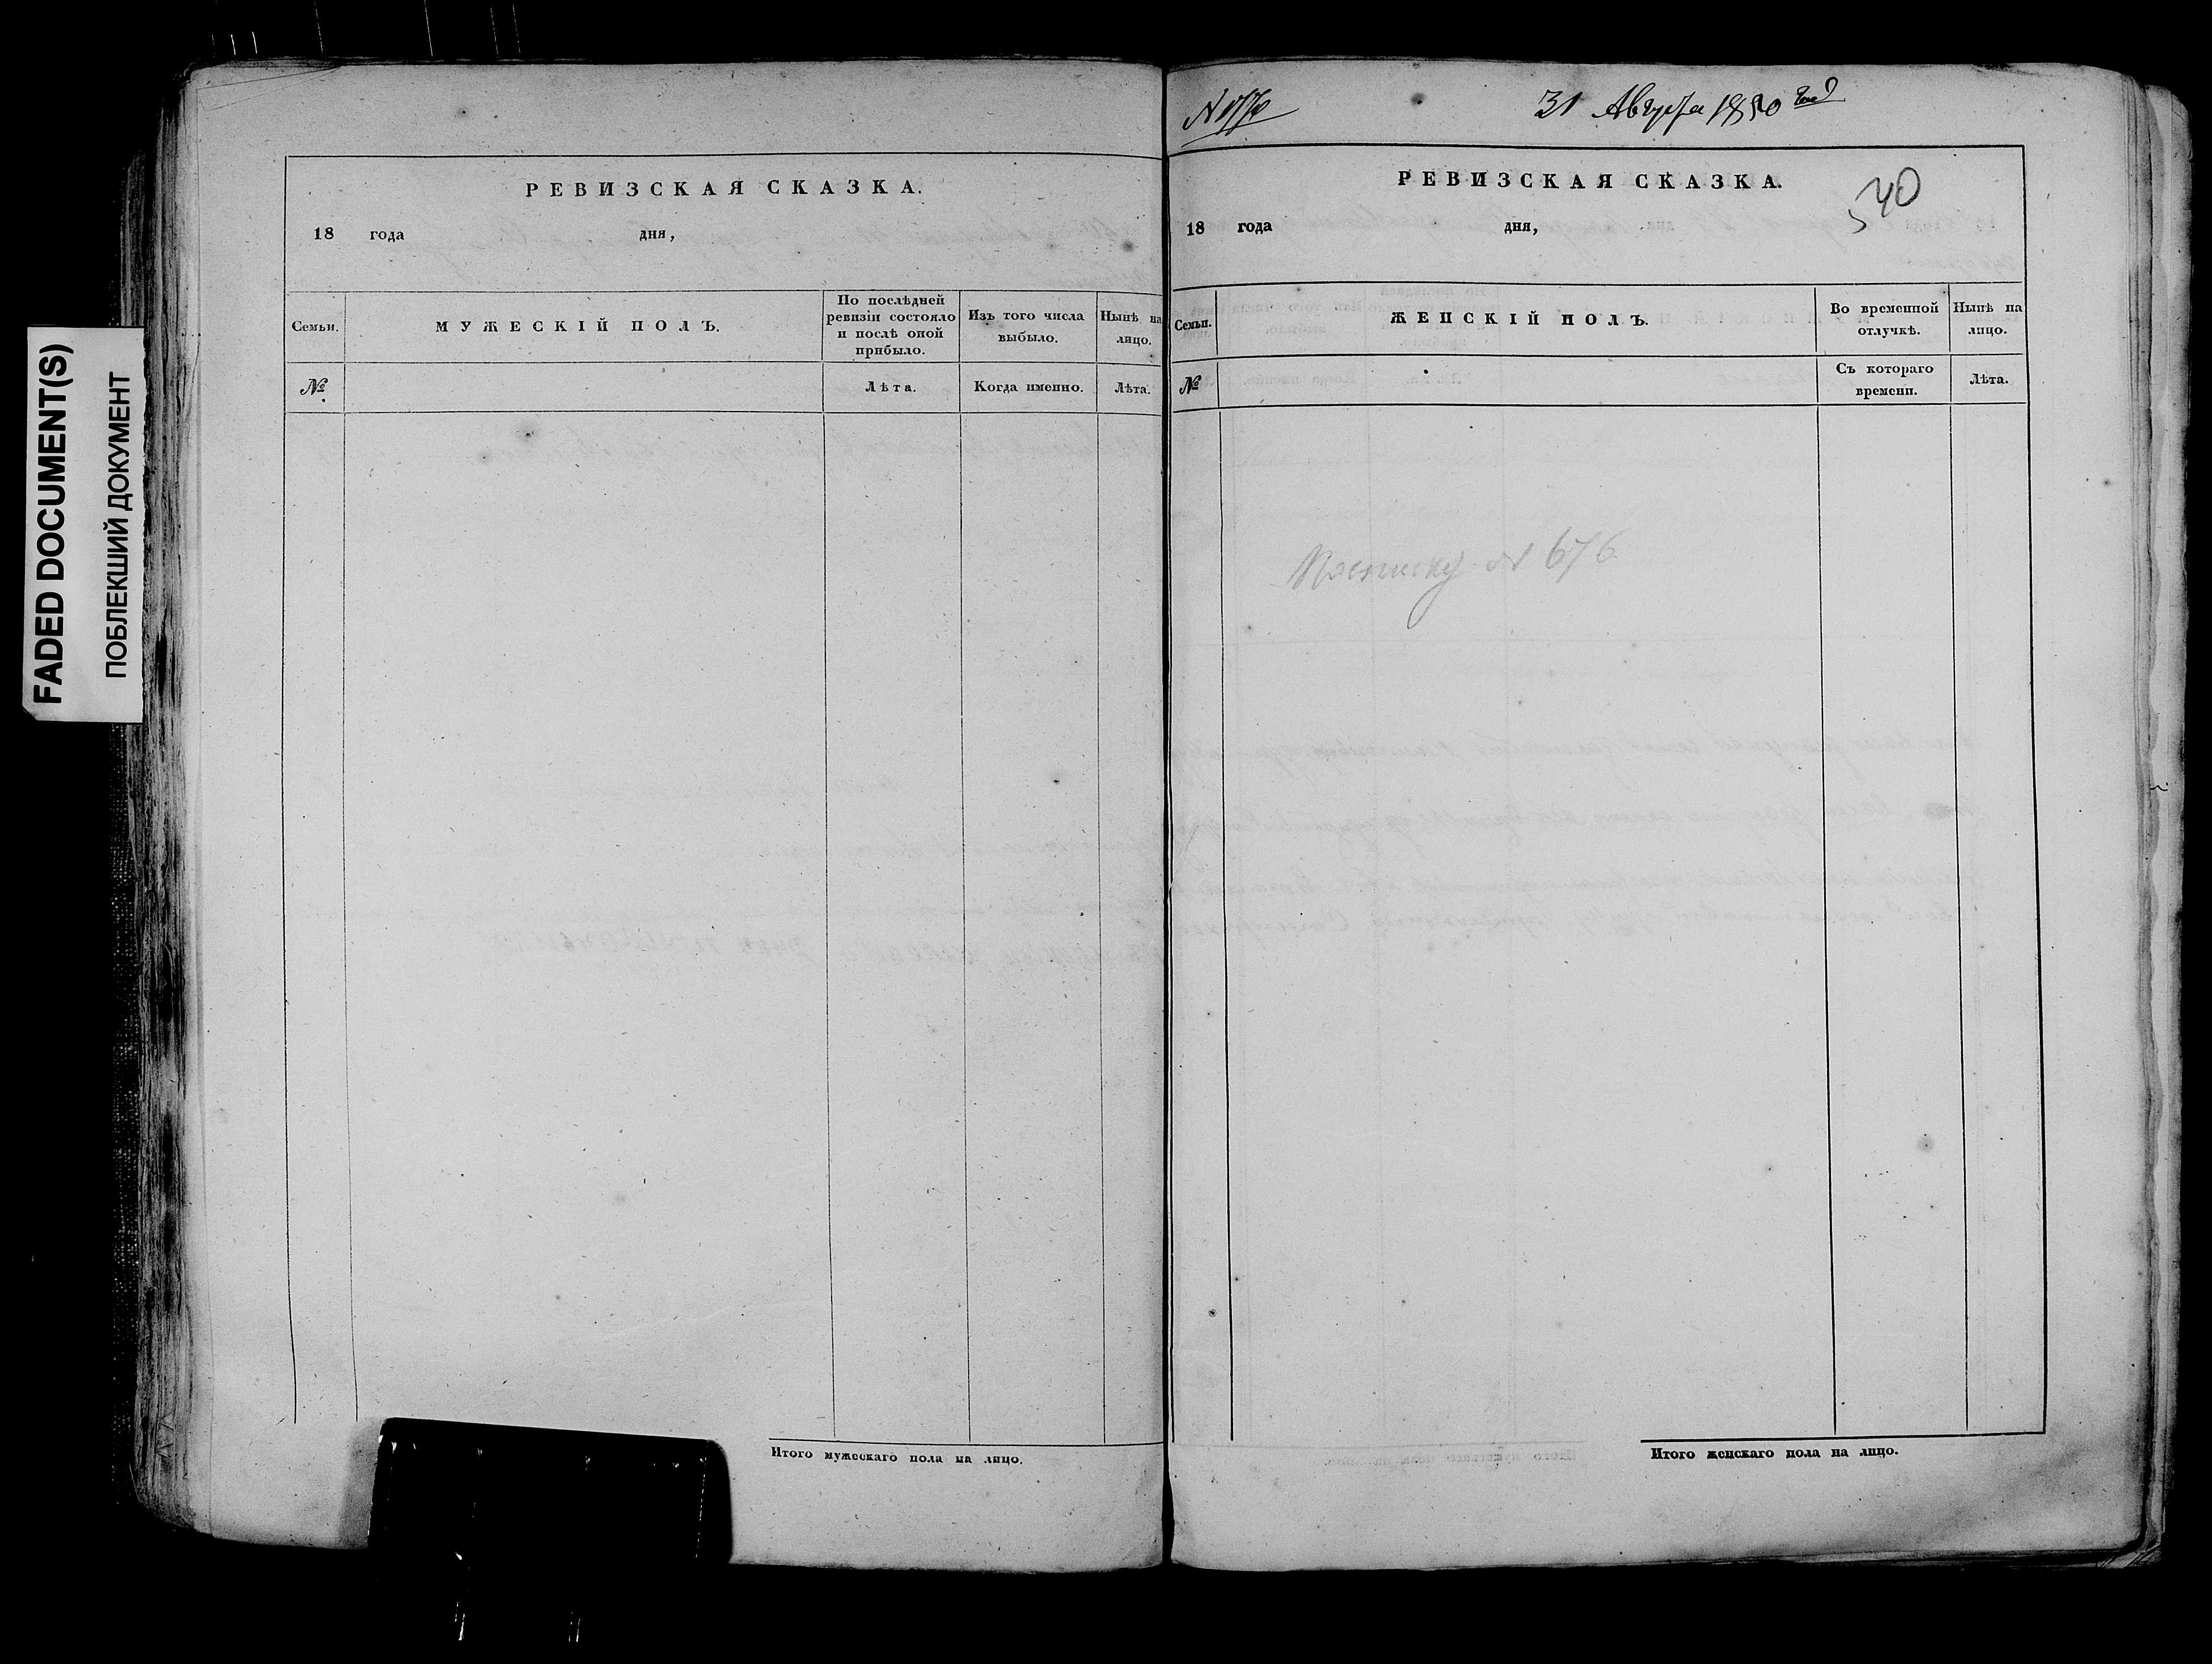 FADED DOCUMENT(S)
ПОБЛЕКШИЙ ДОКУМЕНТ
РЕВИЗСКАЯ СКАЗКА.
18 года дня,
Семьи.
МУЖЕСКІЙ ПОЛЪ.
По послѣдней
ревизіи состояло
и послѣ оной
прибыло.
Изъ того числа
выбыло.
Нынѣ на
лицо.
№
Лѣта.
Когда именно.
Лѣта.
Итого мужескаго пола на лицо.
31 Августа 1850 год
РЕВИЗСКАЯ СКАЗКА.
540
18 года дня,
Семьи.
ЖЕНСКІЙ ПОЛЪ.
Во временной
отлучкѣ.
Нынѣ на
лицо.
№
Съ котораго
времени.
Лѣта.
№ 676
Итого женскаго пола на лицо.